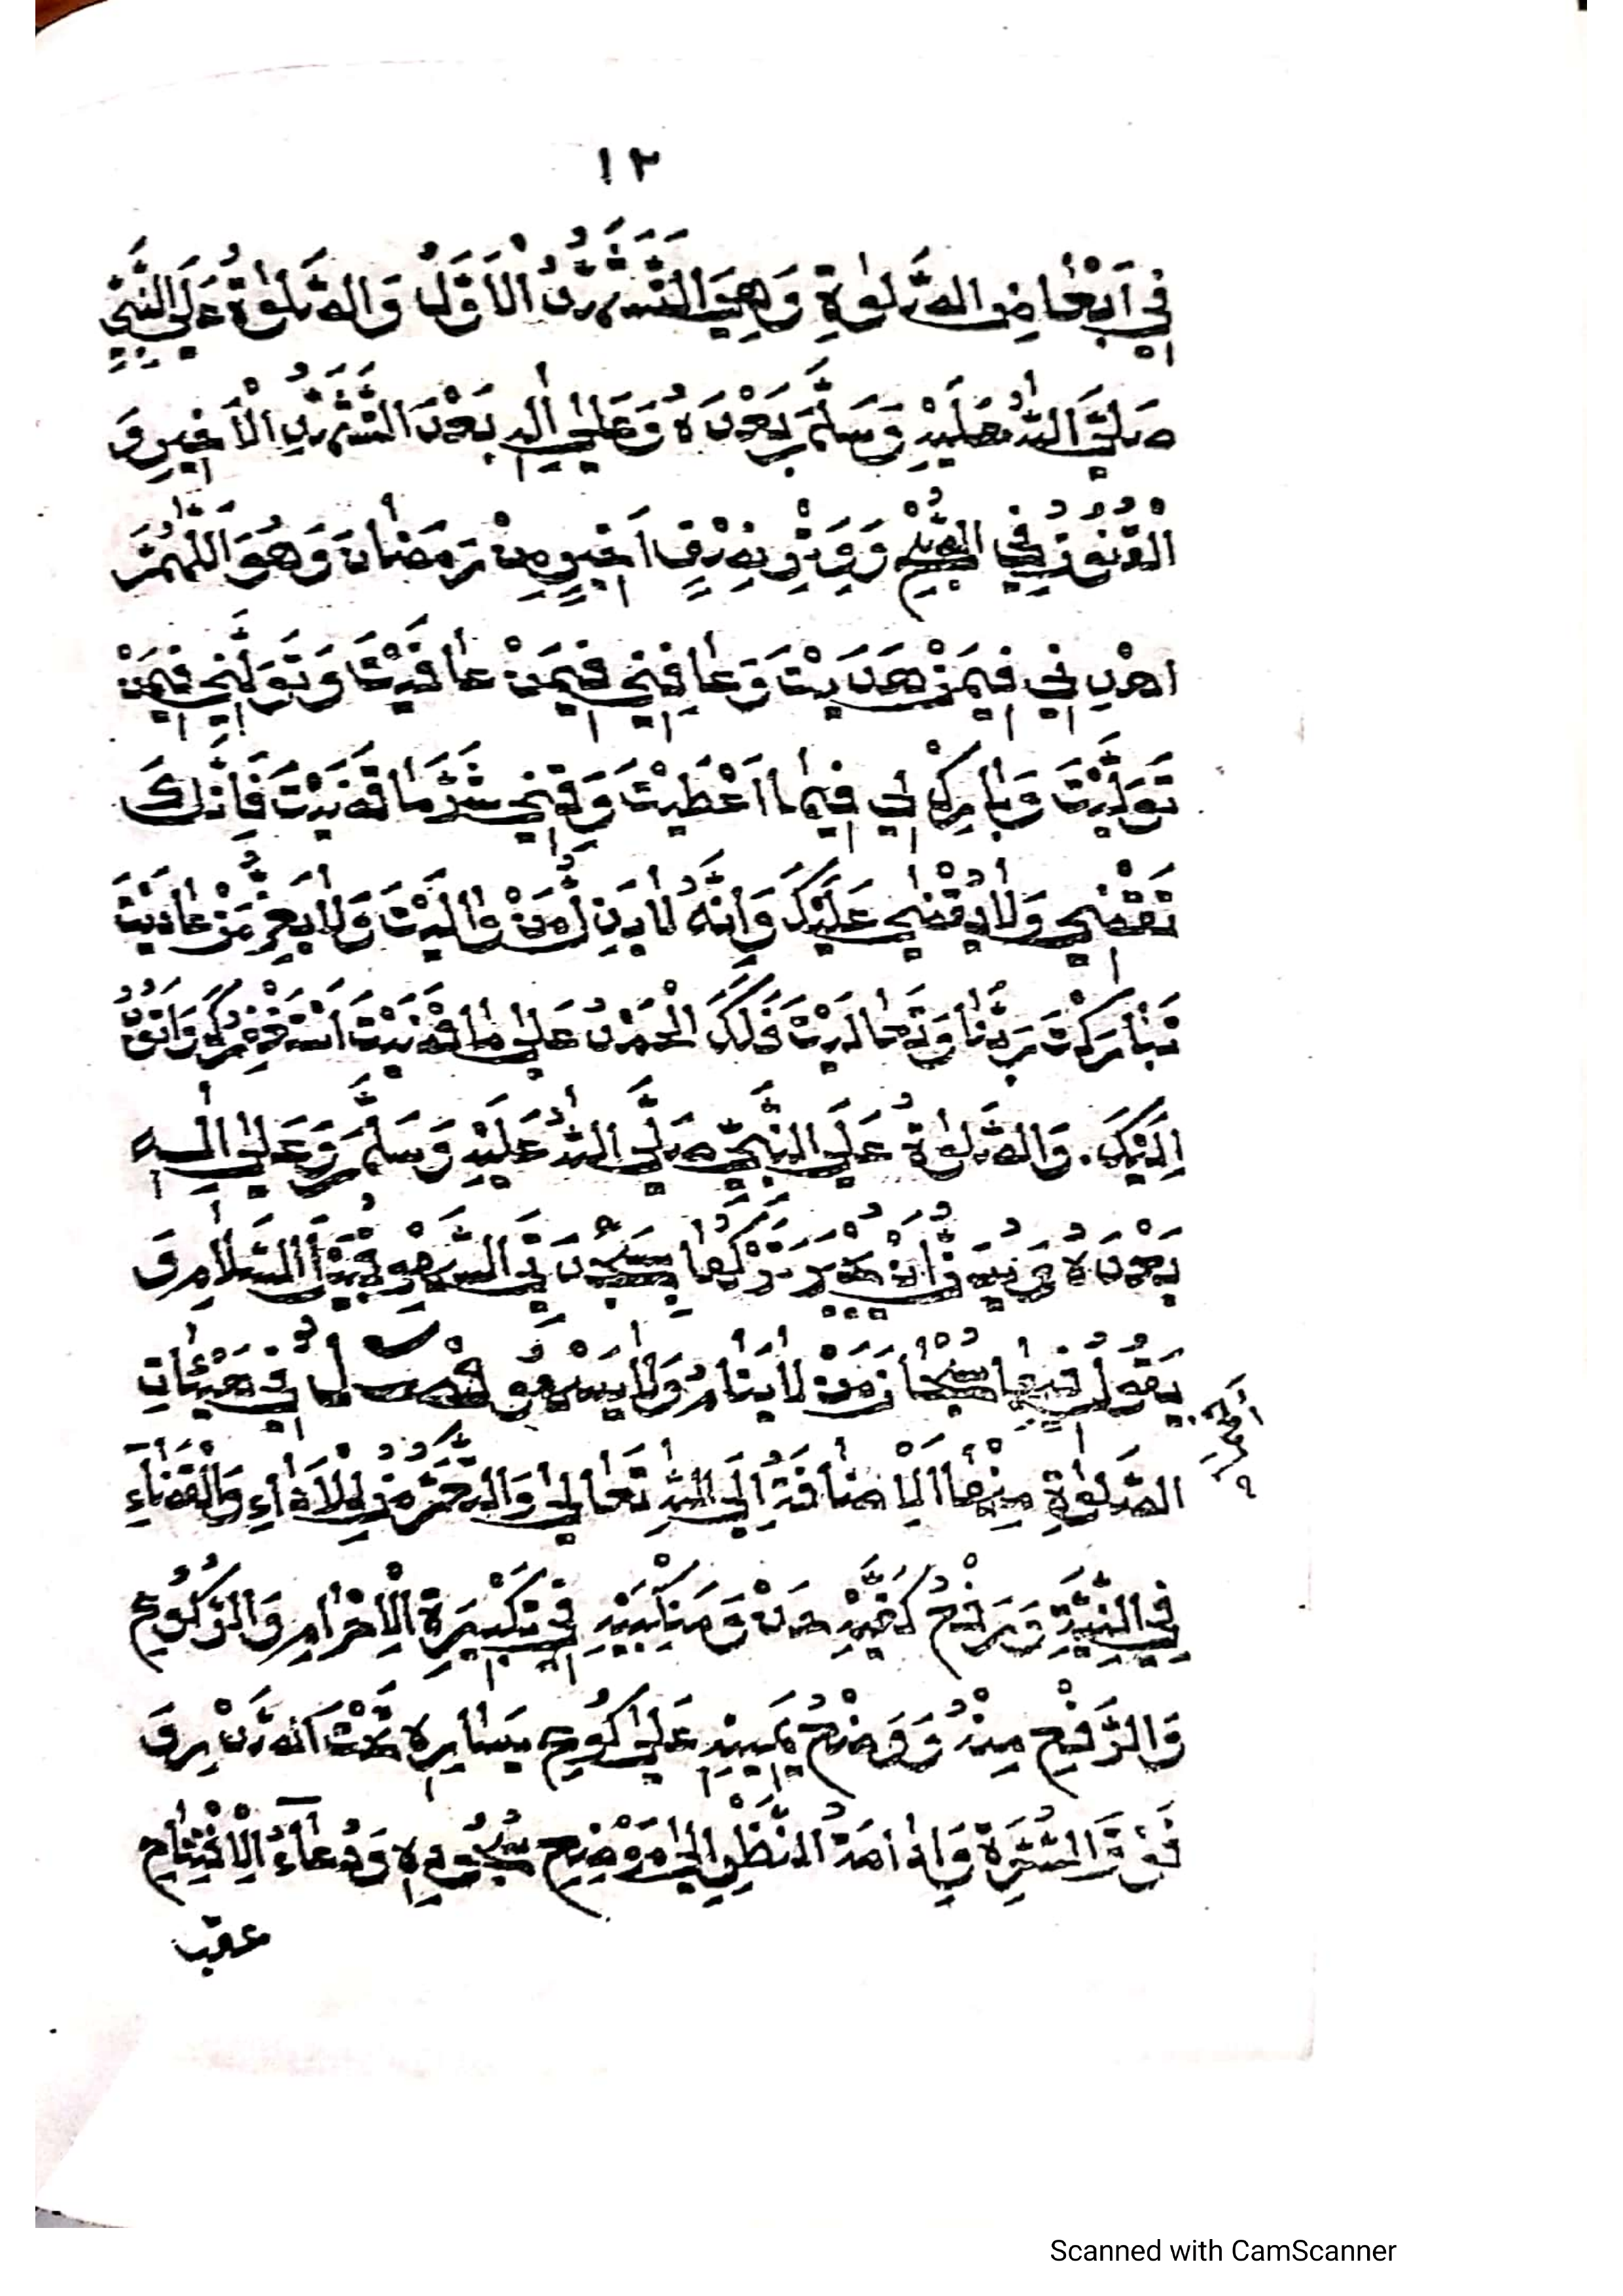 ١٢
فِي اَبْعَاضِ الصَّلٰوةِ وَهِيَ التَّشَهُّدُ الْاَوَّلُ وَالصَّلٰوةُ عَلَى النَّبِيِّ
صَلَّى اللّٰهُ عَلَيْهِ وَسَلَّمَ بَعْدَهُ وَعَلٰى اٰلِهِ بَعْدَ التَّشَهُّدِ الْاَخِيرِ وَ
الْقُنُوتُ فِي الصُّبْحِ وَوِتْرِ نِصْفٍ اَخِيرٍ مِنْ رَمَضَانَ وَهُوَ اَللّٰهُمَّ
اهْدِنِي فِيمَنْ هَدَيْتَ وَعَافِنِي فِيمَنْ عَافَيْتَ وَتَوَلَّنِي فِيمَنْ
تَوَلَّيْتَ وَبَارِكْ لِي فِيمَا اَعْطَيْتَ وَقِنِي شَرَّ مَا قَضَيْتَ فَاِنَّكَ
تَقْضِي وَلَا يُقْضٰى عَلَيْكَ وَاِنَّهُ لَا يَذِلُّ مَنْ وَالَيْتَ وَلَا يَعِزُّ مَنْ عَادَيْتَ
تَبَارَكْتَ رَبَّنَا وَتَعَالَيْتَ فَلَكَ الْحَمْدُ عَلٰى مَا قَضَيْتَ اَسْتَغْفِرُكَ وَاَتُوبُ
اِلَيْكَ. وَالصَّلٰوةُ عَلَى النَّبِيِّ صَلَّى اللّٰهُ عَلَيْهِ وَسَلَّمَ وَعَلٰى اٰلِهِ
بَعْدَهُ سُجُودَ السَّهْوِ قُبَيْلَ السَّلَامِ وَ
يَقُولُ فِيهَا سُبْحَانَ مَنْ لَا يَنَامُ وَلَا يَسْهُو فَصْلٌ فِي هَيْئَاتِ
الصَّلٰوةِ مِنْهَا الْاِضَافَةُ اِلَى اللّٰهِ تَعَالٰى وَالتَّعَرُّضُ لِلْاَدَاءِ وَالْقَضَاءِ
فِي النِّيَّةِ وَرَفْعُ كَفَّيْهِ حَذْوَ مَنْكِبَيْهِ فِي تَكْبِيرَةِ الْاِحْرَامِ وَالرُّكُوعِ
وَالرَّفْعِ مِنْهُ وَوَضْعُ يَمِينِهِ عَلٰى كُوعِ يَسَارِهِ تَحْتَ الصَّدْرِ وَ
فَوْقَ السُّرَّةِ وَاِدَامَةُ النَّظَرِ اِلٰى مَوْضِعِ سُجُودِهِ وَدُعَاءُ الْاِفْتِتَاحِ
عقب
Scanned with CamScanner